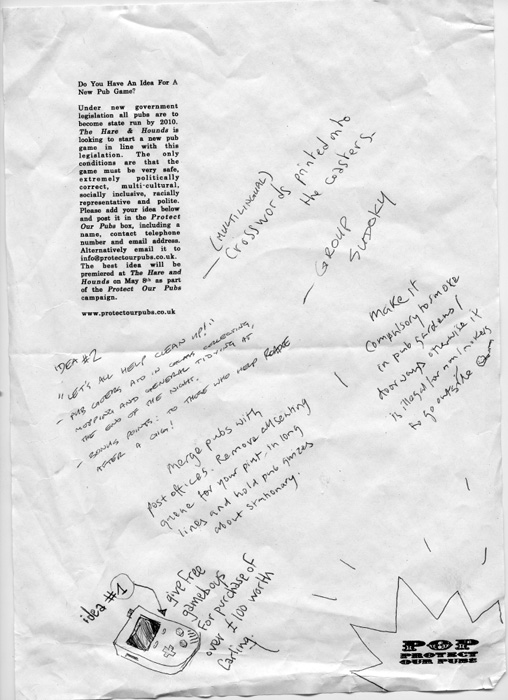 Do You Have An Idea For A
New Pub Game?
Under new government
legislation all pubs are to
become state run by 2010.
The Hare & Hounds is
looking to start a new pub
game in line with this
legislation. The only
conditions are that the
game must be very safe,
extremely politically
correct, multi-cultural,
socially inclusive, racially
representative and polite.
Please add your idea below
and post it in the Protect
Our Pubs box, including a
name, contact telephone
number and email address.
Alternatively email it to
info@protectourpubs.co.uk.
The best idea will be
premiered at The Hare and
Hounds on May 8th as part
of the Protect Our Pubs
campaign.
www.protectourpubs.co.uk
- (MULTILINGUAL)
Crosswords printed onto
the coasters
- GROUP
SUDOKU
make it
compulsory to smoke
in pub gardens /
doorways otherwise it
is illegal for non/smokers
to go outside
IDEA #2
"LET'S ALL HELP CLEAN UP!"
- PUB GOERS AID IN GLASS COLLECTING,
MOPPING AND GENERAL TIDYING AT
THE END OF THE NIGHT.
- BONUS POINTS: TO THOSE WHO HELP ROADIE
AFTER A GIG!
Merge pubs with
post offices. Remove all seating
queue for your pint in long
lines and hold pub quizzes
about stationary.
idea #1
give free
gameboys
for purchase of
over £100 worth
Carling.
POP
PROTECT
OUR PUBS